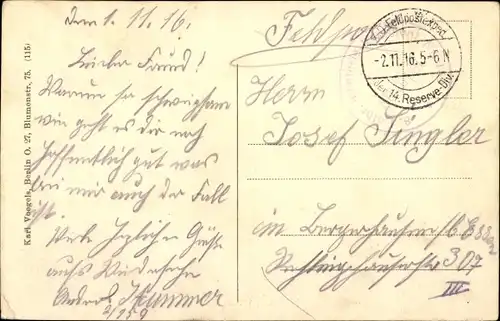 Karl Voegels, Berlin O. 27, Blumenstr. 75. (115)
den 1. 11. 16.
Lieber Freund!
Warum so schweigsam
wie geht es dir noch
hoffentlich gut was
bei mir auch der Fall
ist.
Viele herzliche Grüße
aufs Wiedersehn
Hummer
Feldpost
K.D. Feldpostexped.
-2.11.16. 5-6 N
der 14. Reserve-Div.
Herrn
Josef Singler
in Bergerhausen b. Essen
307
III